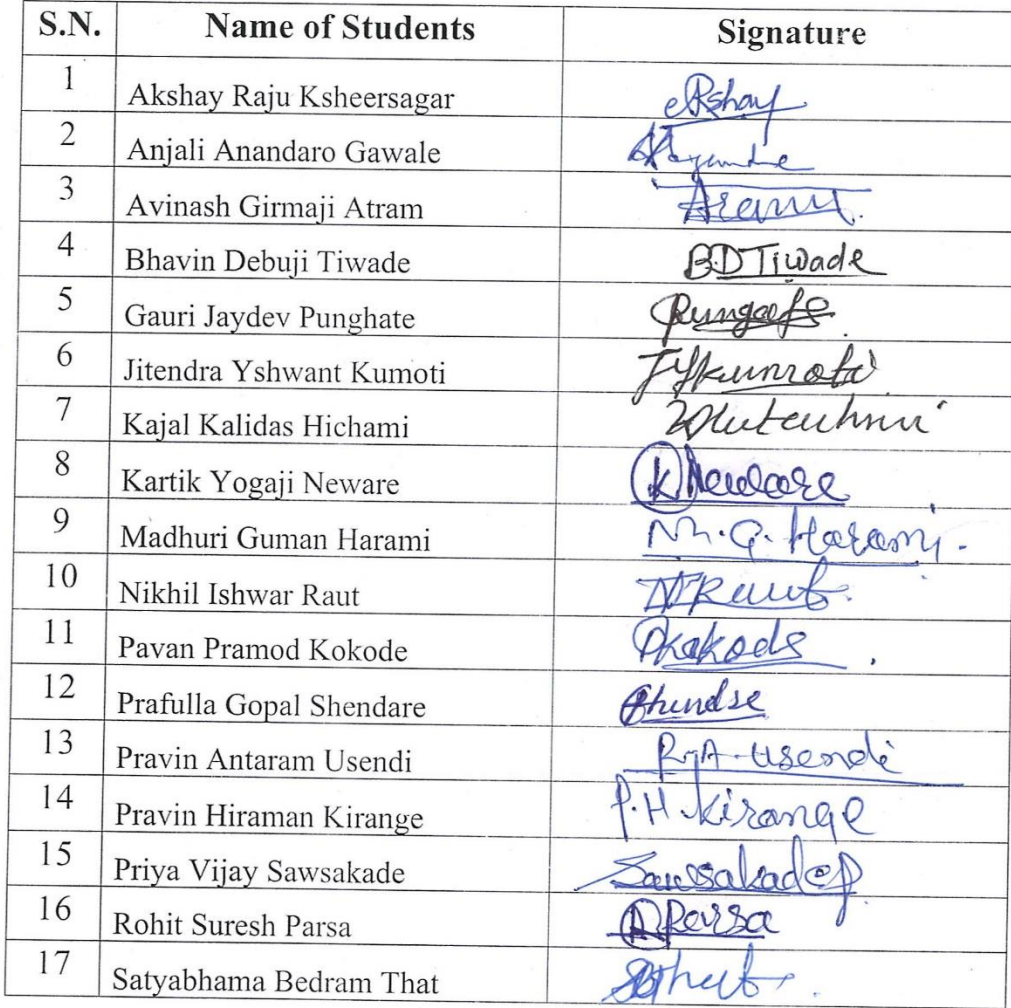 S.N. Name of Students Signature
1 Akshay Raju Ksheersagar Akshay
2 Anjali Anandaro Gawale
3 Avinash Girmaji Atram
4 Bhavin Debuji Tiwade B.D Tiwade
5 Gauri Jaydev Punghate
6 Jitendra Yshwant Kumoti
7 Kajal Kalidas Hichami
8 Kartik Yogaji Neware K Neware
9 Madhuri Guman Harami M.G. Harami.
10 Nikhil Ishwar Raut NIRaut.
11 Pavan Pramod Kokode PKokode
12 Prafulla Gopal Shendare
13 Pravin Antaram Usendi P.A. Usendi
14 Pravin Hiraman Kirange P.H. Kirange
15 Priya Vijay Sawsakade Sawsakade
16 Rohit Suresh Parsa Parsa
17 Satyabhama Bedram That